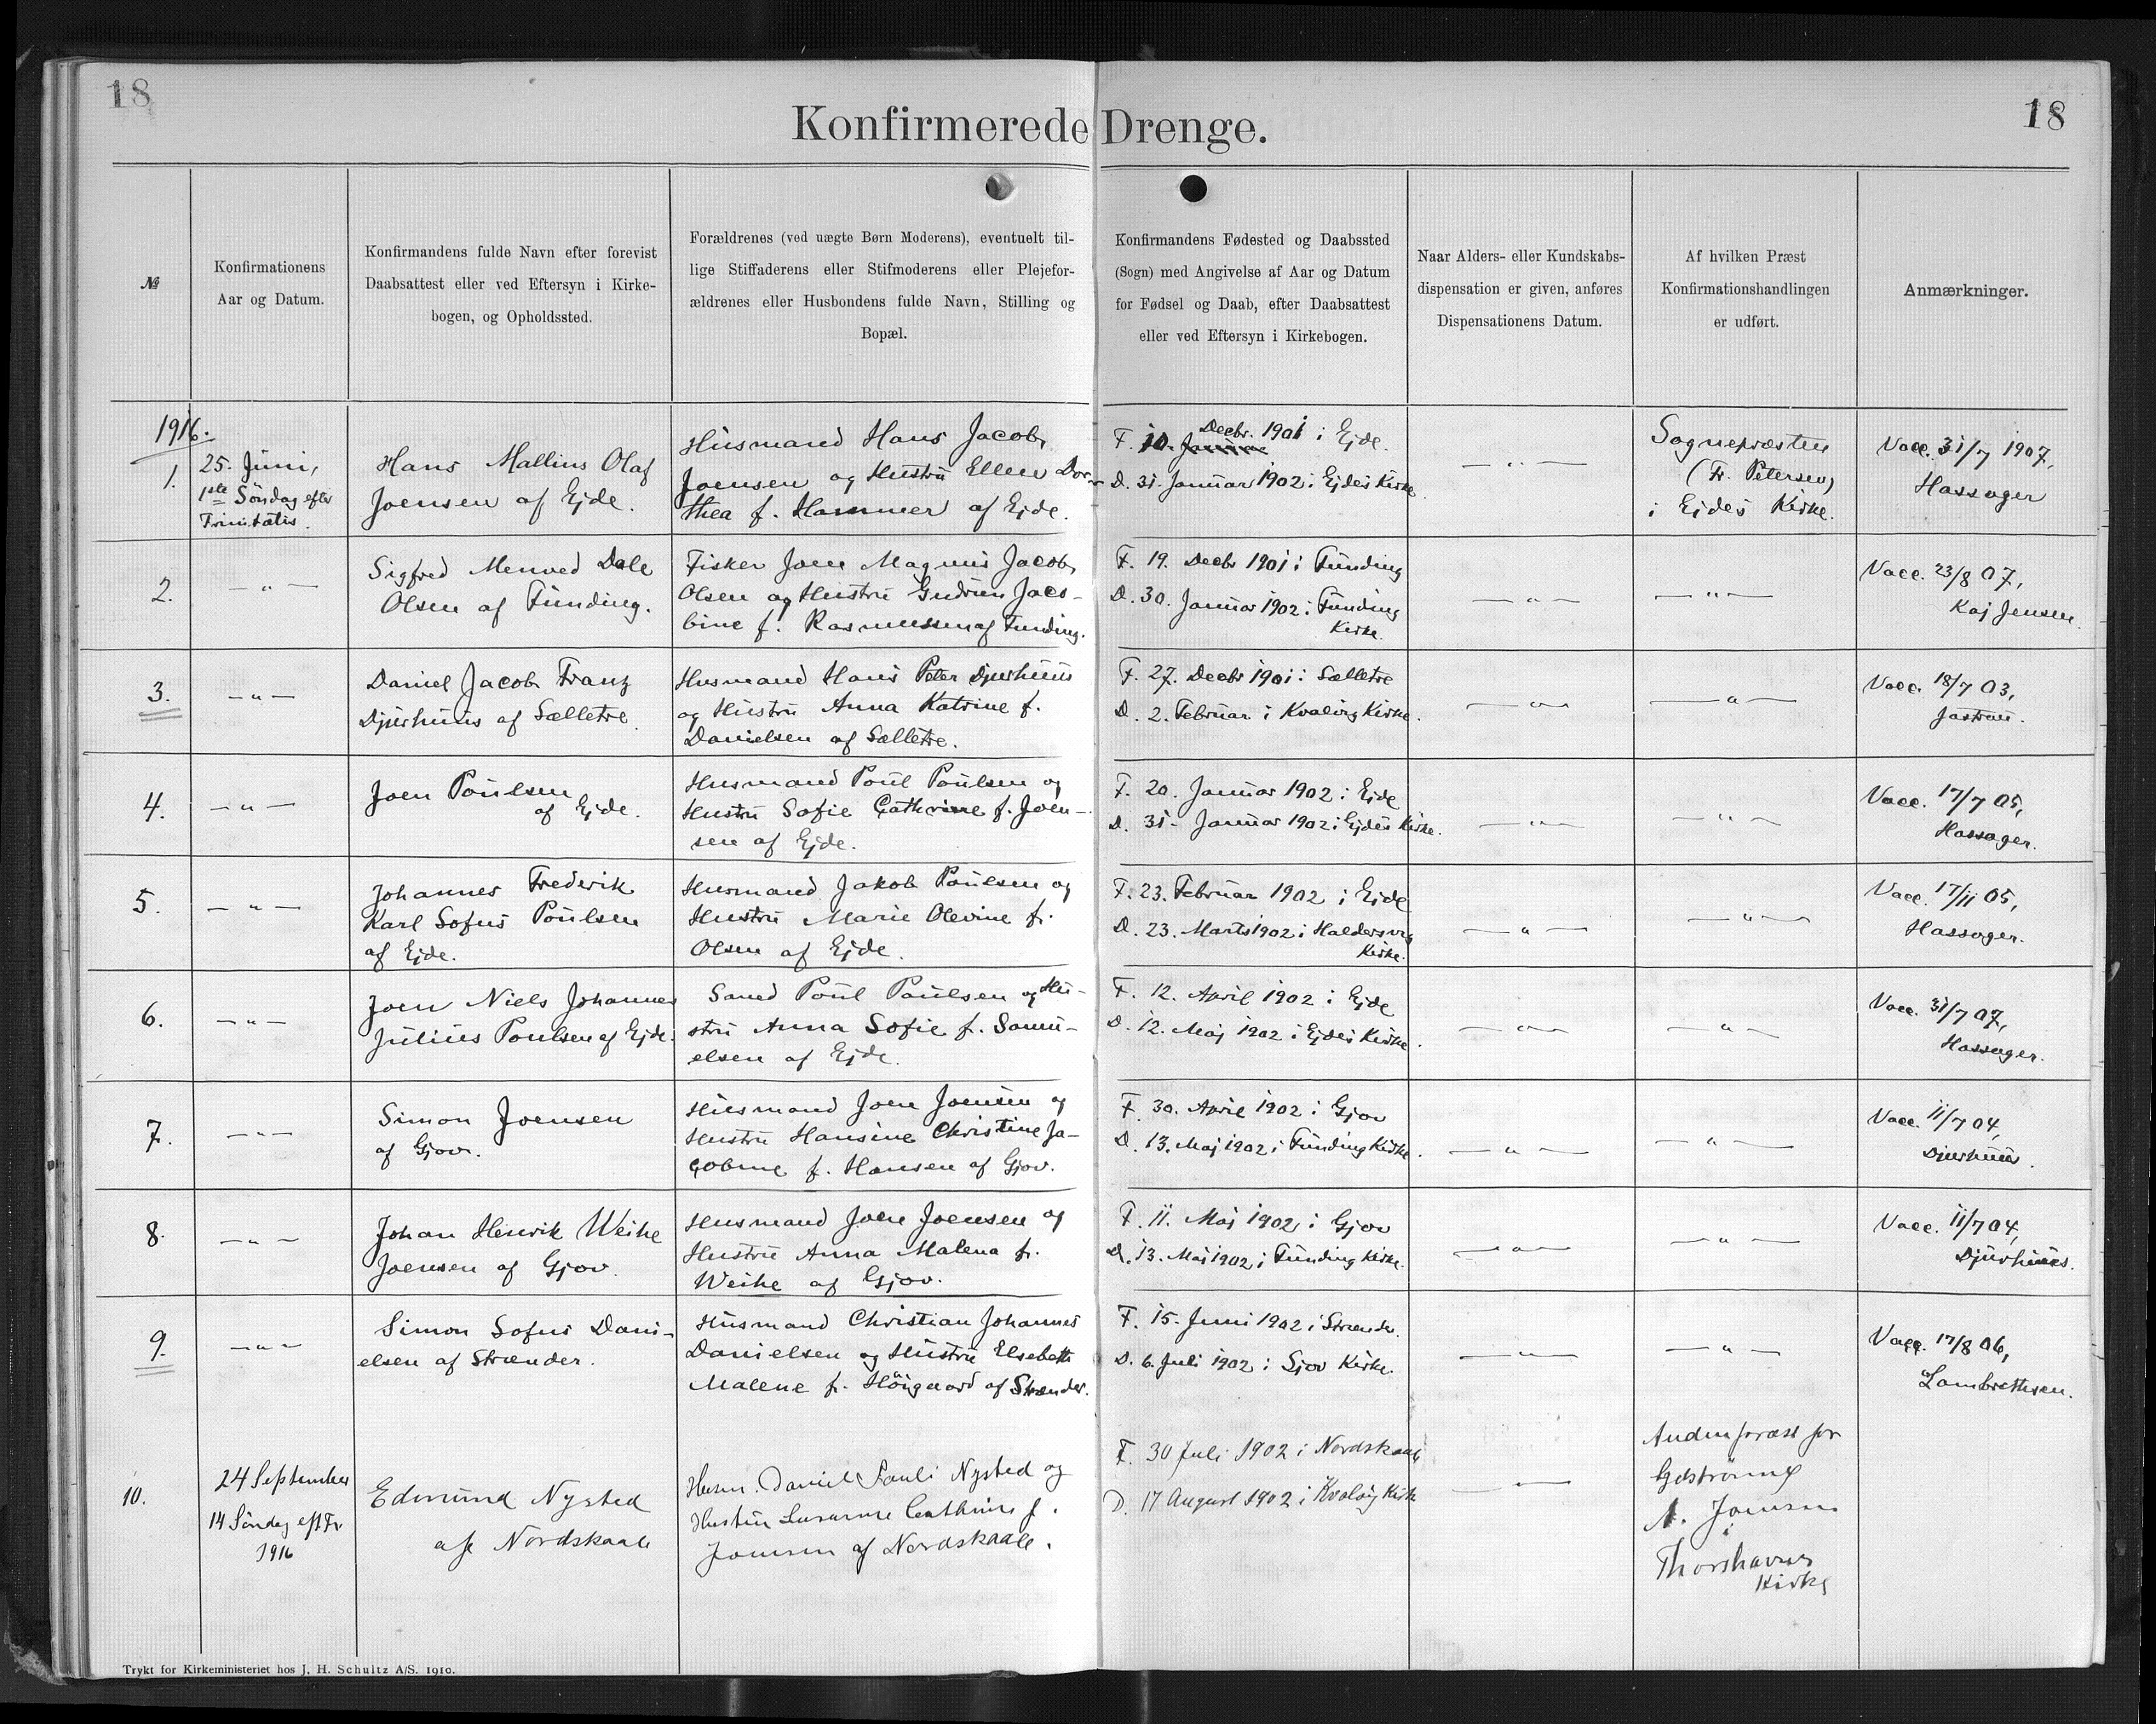 18
18
Konfirmerede Drenge.
№
Konfirmationens
Aar og Datum.
Konfirmandens fulde Navn efter forevist
Daabsattest eller ved Eftersyn i Kirke-
bogen, og Opholdssted.
Forældrenes (ved uægte Børn Moderens), eventuelt til-
lige Stiffaderens eller Stifmoderens eller Plejefor-
ældrenes eller Husbondens fulde Navn, Stilling og
Bopæl.
Konfirmandens Fødested og Daabssted
(Sogn) med Angivelse af Aar og Datum
for Fødsel og Daab, efter Daabsattest
eller ved Eftersyn i Kirkebogen.
Naar Alders- eller Kundskabs-
dispensation er given, anføres
Dispensationens Datum.
Af hvilken Præst
Konfirmationshandlingen
er udført.
Anmærkninger.
1916.
1.
25. Juni,
1ste Söndag efter
Trinitatis.
Hans Mallins Olaf
Joensen af Ejde.
Husmand Hans Jacob
Joensen og Hustru Ellen Doro-
thea f. Hammer af Ejde.
F. 10. Januar Decbr. 1901 i Ejde.
D. 31. Januar 1902 i Ejdes Kirke
— " —
Sognepræsten
(Fr. Petersen)
i Ejdes Kirke.
Vacc. 31/7 1907,
Hassager
2.
— " —
Sigfred Menved Dale
Olsen af Funding.
Fisker Joen Magnus Jacob
Olsen og Hustru Gudrun Jaco-
bine f. Rasmussen af Funding.
F. 19. Decbr 1901 i Funding
D. 30. Januar 1902 i Funding
Kirke.
— " —
— " —
Vacc. 23/8 07,
Kaj Jensen.
3.
— " —
Daniel Jacob Franz
Djurhuus af Sælletre.
Husmand Hans Peter Djurhuus
og Hustru Anna Katrine f.
Danielsen af Sælletre.
F. 27. Decbr 1901 i Sælletre
D. 2. Februar i Kvalvig Kirke.
— " —
— " —
Vacc. 18/7 03,
Jastrau.
4.
— " —
Joen Poulsen
af Ejde.
Husmand Poul Poulsen og
Hustru Sofie Cathrine f. Joen-
sen af Ejde.
F. 20. Januar 1902 i Ejde
D. 31. Januar 1902 i Ejdes Kirke.
— " —
— " —
Vacc. 17/7 05,
Hassager.
5.
— " —
Johannes Frederik
Karl Sofus Poulsen
af Ejde.
Husmand Jakob Poulsen og
Hustru Marie Olevine f.
Olsen af Ejde.
F. 23. Februar 1902 i Ejde
D. 23. Marts 1902 i Haldersvig
Kirke.
— " —
— " —
Vacc. 17/11 05,
Hassager.
6.
— " —
Joen Niels Johannes
Julius Poulsen af Ejde.
Sømd Poul Poulsen og Hu-
stru Anna Sofie f. Samu-
elsen af Ejde.
F. 12. April 1902 i Ejde
D. 12. Maj 1902 i Ejdes Kirke.
— " —
— " —
Vacc. 31/7 07,
Hassager.
7.
— " —
Simon Joensen
af Gjov.
Husmand Joen Joensen og
Hustru Hansine Christine Ja-
cobine f. Hansen af Gjov.
F. 30. April 1902 i Gjov
D. 13. Maj 1902 i Funding Kirke.
— " —
— " —
Vacc. 11/7 04,
Djurhuus.
8.
— " —
Johan Henrik Weihe
Joensen af Gjov.
Husmand Joen Joensen og
Hustru Anna Malena f.
Weihe af Gjov.
F. 11. Maj 1902 i Gjov
D. 13. Maj 1902 i Funding Kirke.
— " —
— " —
Vacc. 11/7 04,
Djurhuus.
9.
— " —
Simon Sofus Dani-
elsen af Strænder.
Husmand Christian Johannes
Danielsen og Hustru Elsebeth
Malene f. Höigaard af Strænder.
F. 15. Juni 1902 i Strænder.
D. 6. Juli 1902 i Gjov Kirke.
— " —
— " —
Vacc. 17/8 06,
Lambrethsen.
10.
24 September
14 Söndag eft Tr
1916
Edmund Nysted
af Nordskaale
Husm. Daniel Pauli Nysted og
Hustru Susanne Cathrine f.
Joensen af Nordskaale.
F. 30 Juli 1902 i Nordskaale
D. 17 August 1902 i Kvalvig Kirke
— " —
Andenpræst for
A. Joensen
i
Thorshavns
Kirke
Trykt for Kirkeministeriet hos J. H. Schultz A/S. 1910.